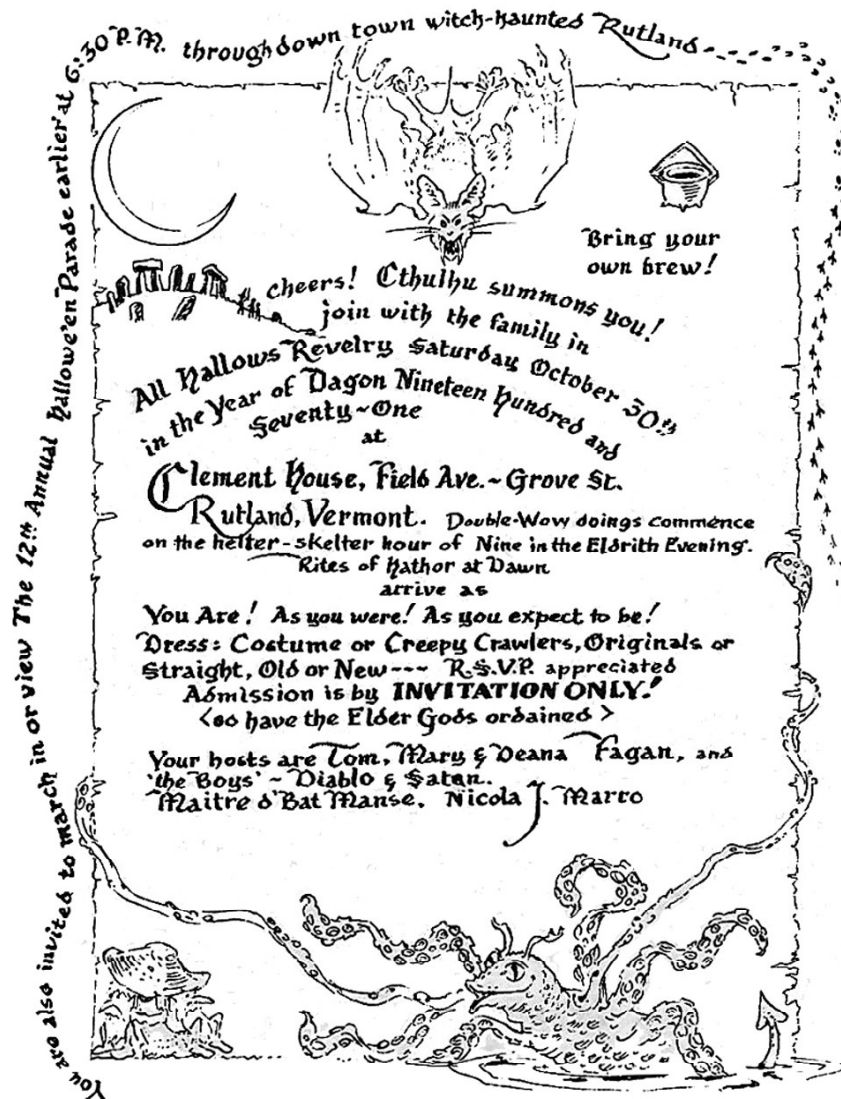 You are also invited to march in or view The 12th Annual Hallowe'en Parade earlier at 6:30 P.M. through down town witch-haunted Rutland
Bring your
own brew!
cheers! Cthulhu summons you!
join with the family in
All Hallows Revelry Saturday October 30th
in the Year of Dagon Nineteen Hundred and
Seventy~One
at
Clement House, Field Ave.~Grove St.
Rutland, Vermont. Double-Wow doings commence
on the helter-skelter hour of Nine in the Eldrith Evening.
Rites of Hathor at Dawn
arrive as
You Are! As you were! As you expect to be!
Dress: Costume or Creepy Crawlers, Originals or
Straight, Old or New--- R.S.V.P. appreciated
Admission is by INVITATION ONLY!
<so have the Elder Gods ordained>
Your hosts are Tom, Mary & Deana Fagan, and
'the Boys' ~ Diablo & Satan.
Maitre d'Bat Manse, Nicola J. Marro